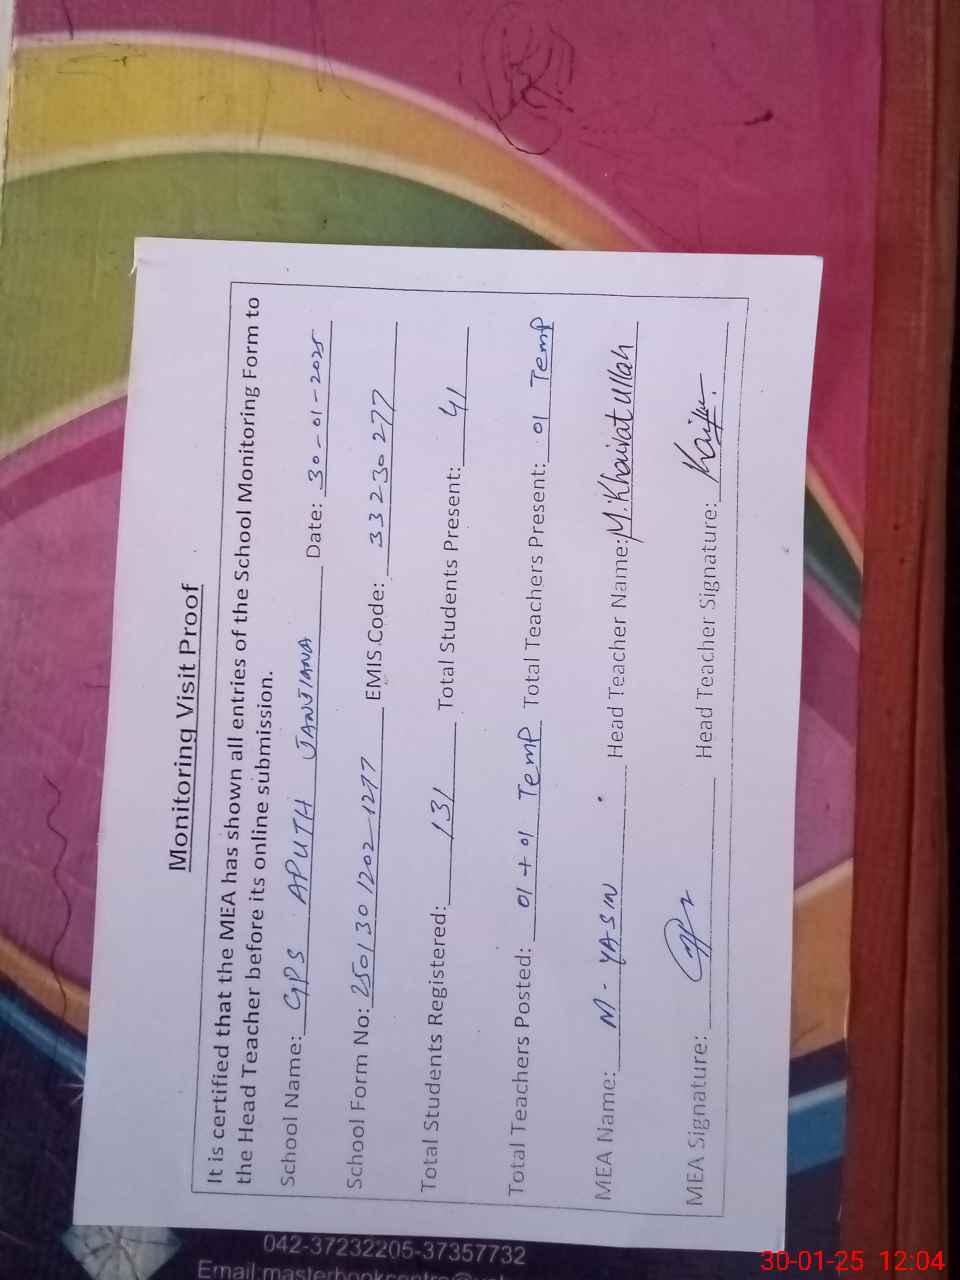 Monitoring Visit Proof
It is certified that the MEA has shown all entries of the School Monitoring Form to
the Head Teacher before its online submission.
School Name: GPS APUTH JANJIANA Date: 30-01-2025
School Form No: 250130 1202-1277 EMIS Code: 33230277
Total Students Registered: 131 Total Students Present: 41
Total Teachers Posted: 01 + 01 Temp Total Teachers Present: 01 Temp
MEA Name: M - YASIN Head Teacher Name: M. Khairatullah
MEA Signature: Head Teacher Signature:
042-37232205-37357732
30-01-25 12:04